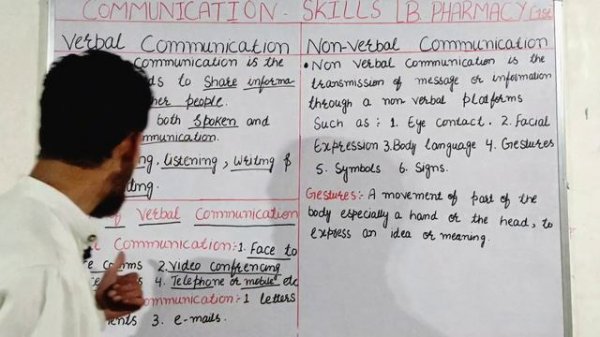 COMMUNICATION - SKILLS (B. PHARMACY
Verbal Communication
communication is the
to share informa
people.
both spoken and
listening, writing &
Verbal Communication
Communication:- 1. Face to
2. Video conferencing
4. Telephone or mobile etc
communication:- 1 letters
3. e-mails.
Non-Verbal Communication
• Non verbal communication is the
transmission of message or information
through a non verbal platforms
Such as : 1. Eye contact. 2. Facial
Expression 3. Body language 4. Gestures
5. Symbols 6. Signs.
Gestures:- A movement of part of the
body especially a hand or the head, to
express an idea or meaning.